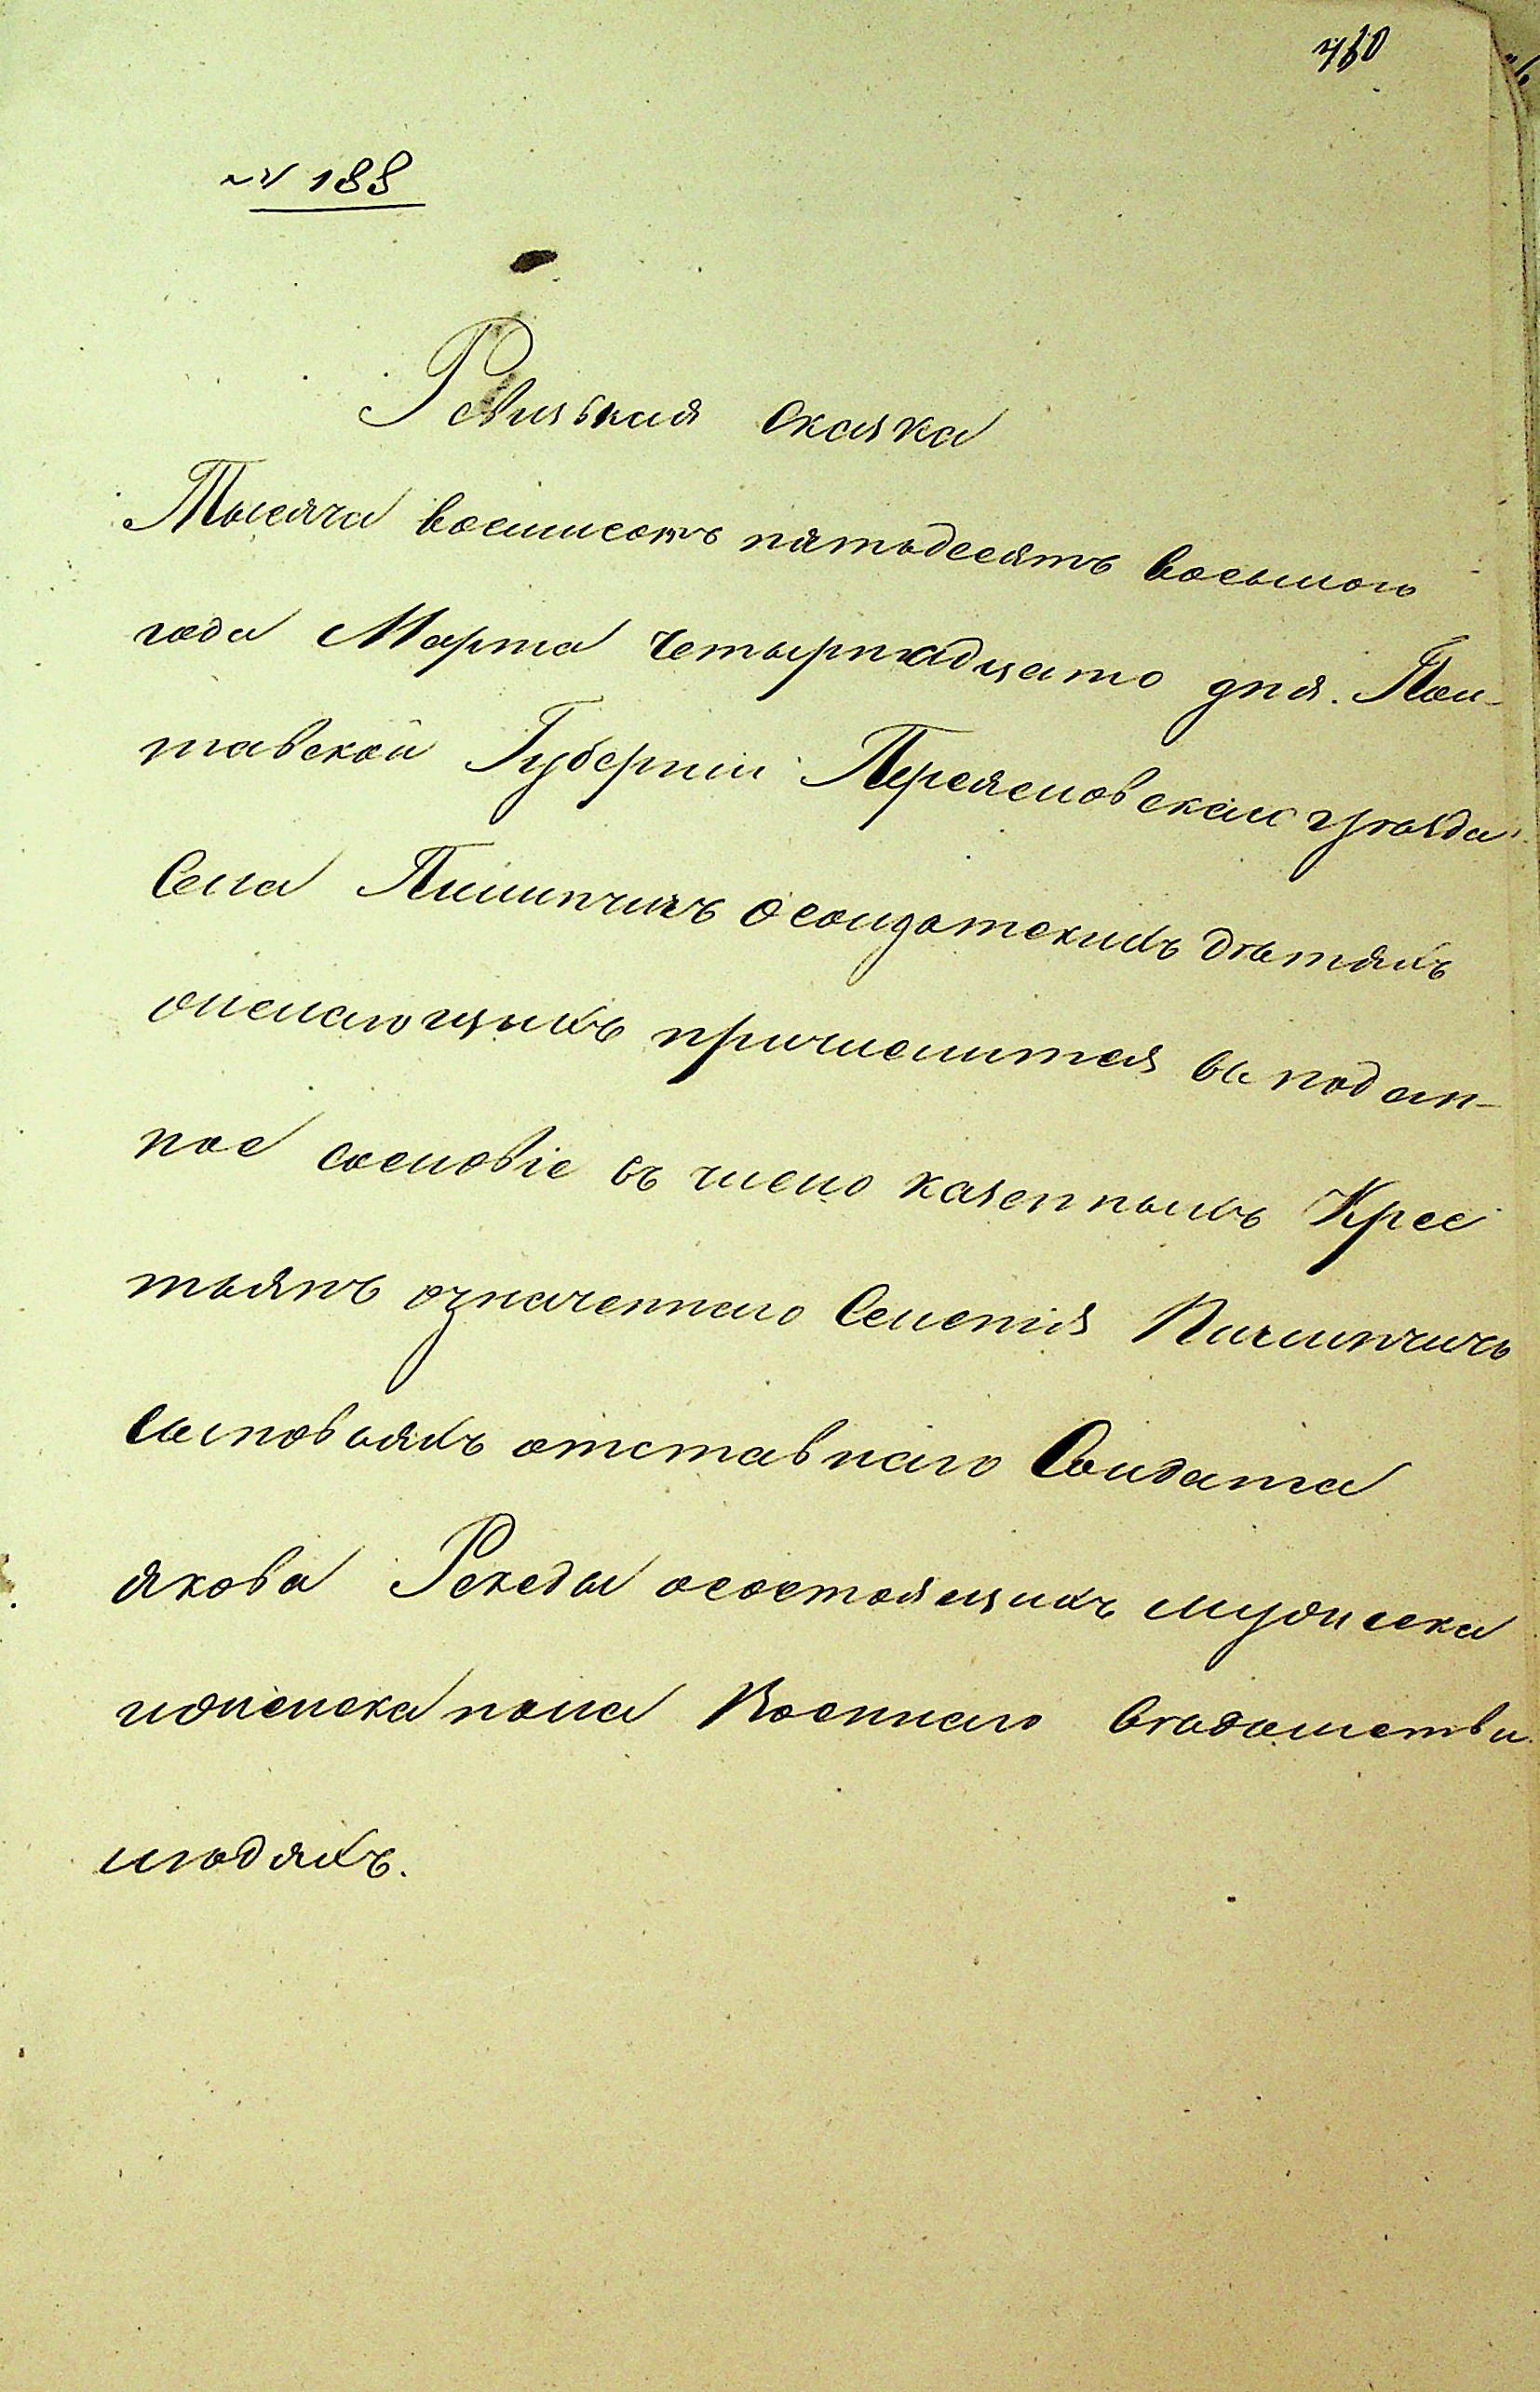 460
№ 188
Ревизькая Сказка
Тысяча восимсотъ пятьдесятъ восьмого
года Марта Четырнадцато дня. Пол-
тавской Губерніи Переясловскаго уѣзда
Села Пилипчичъ осолдатскихъ дѣтяхъ
желающихъ причислится въ подан-
ное сословіе въ число казенныхъ Крес
тьянъ означеннаго Селенія Пилипчичъ
Сыновьяхъ отставнаго Солдата
якова Рекеды осостоящихъ мужиска
иженска пола Военнаго Вѣдомства
людяхъ.